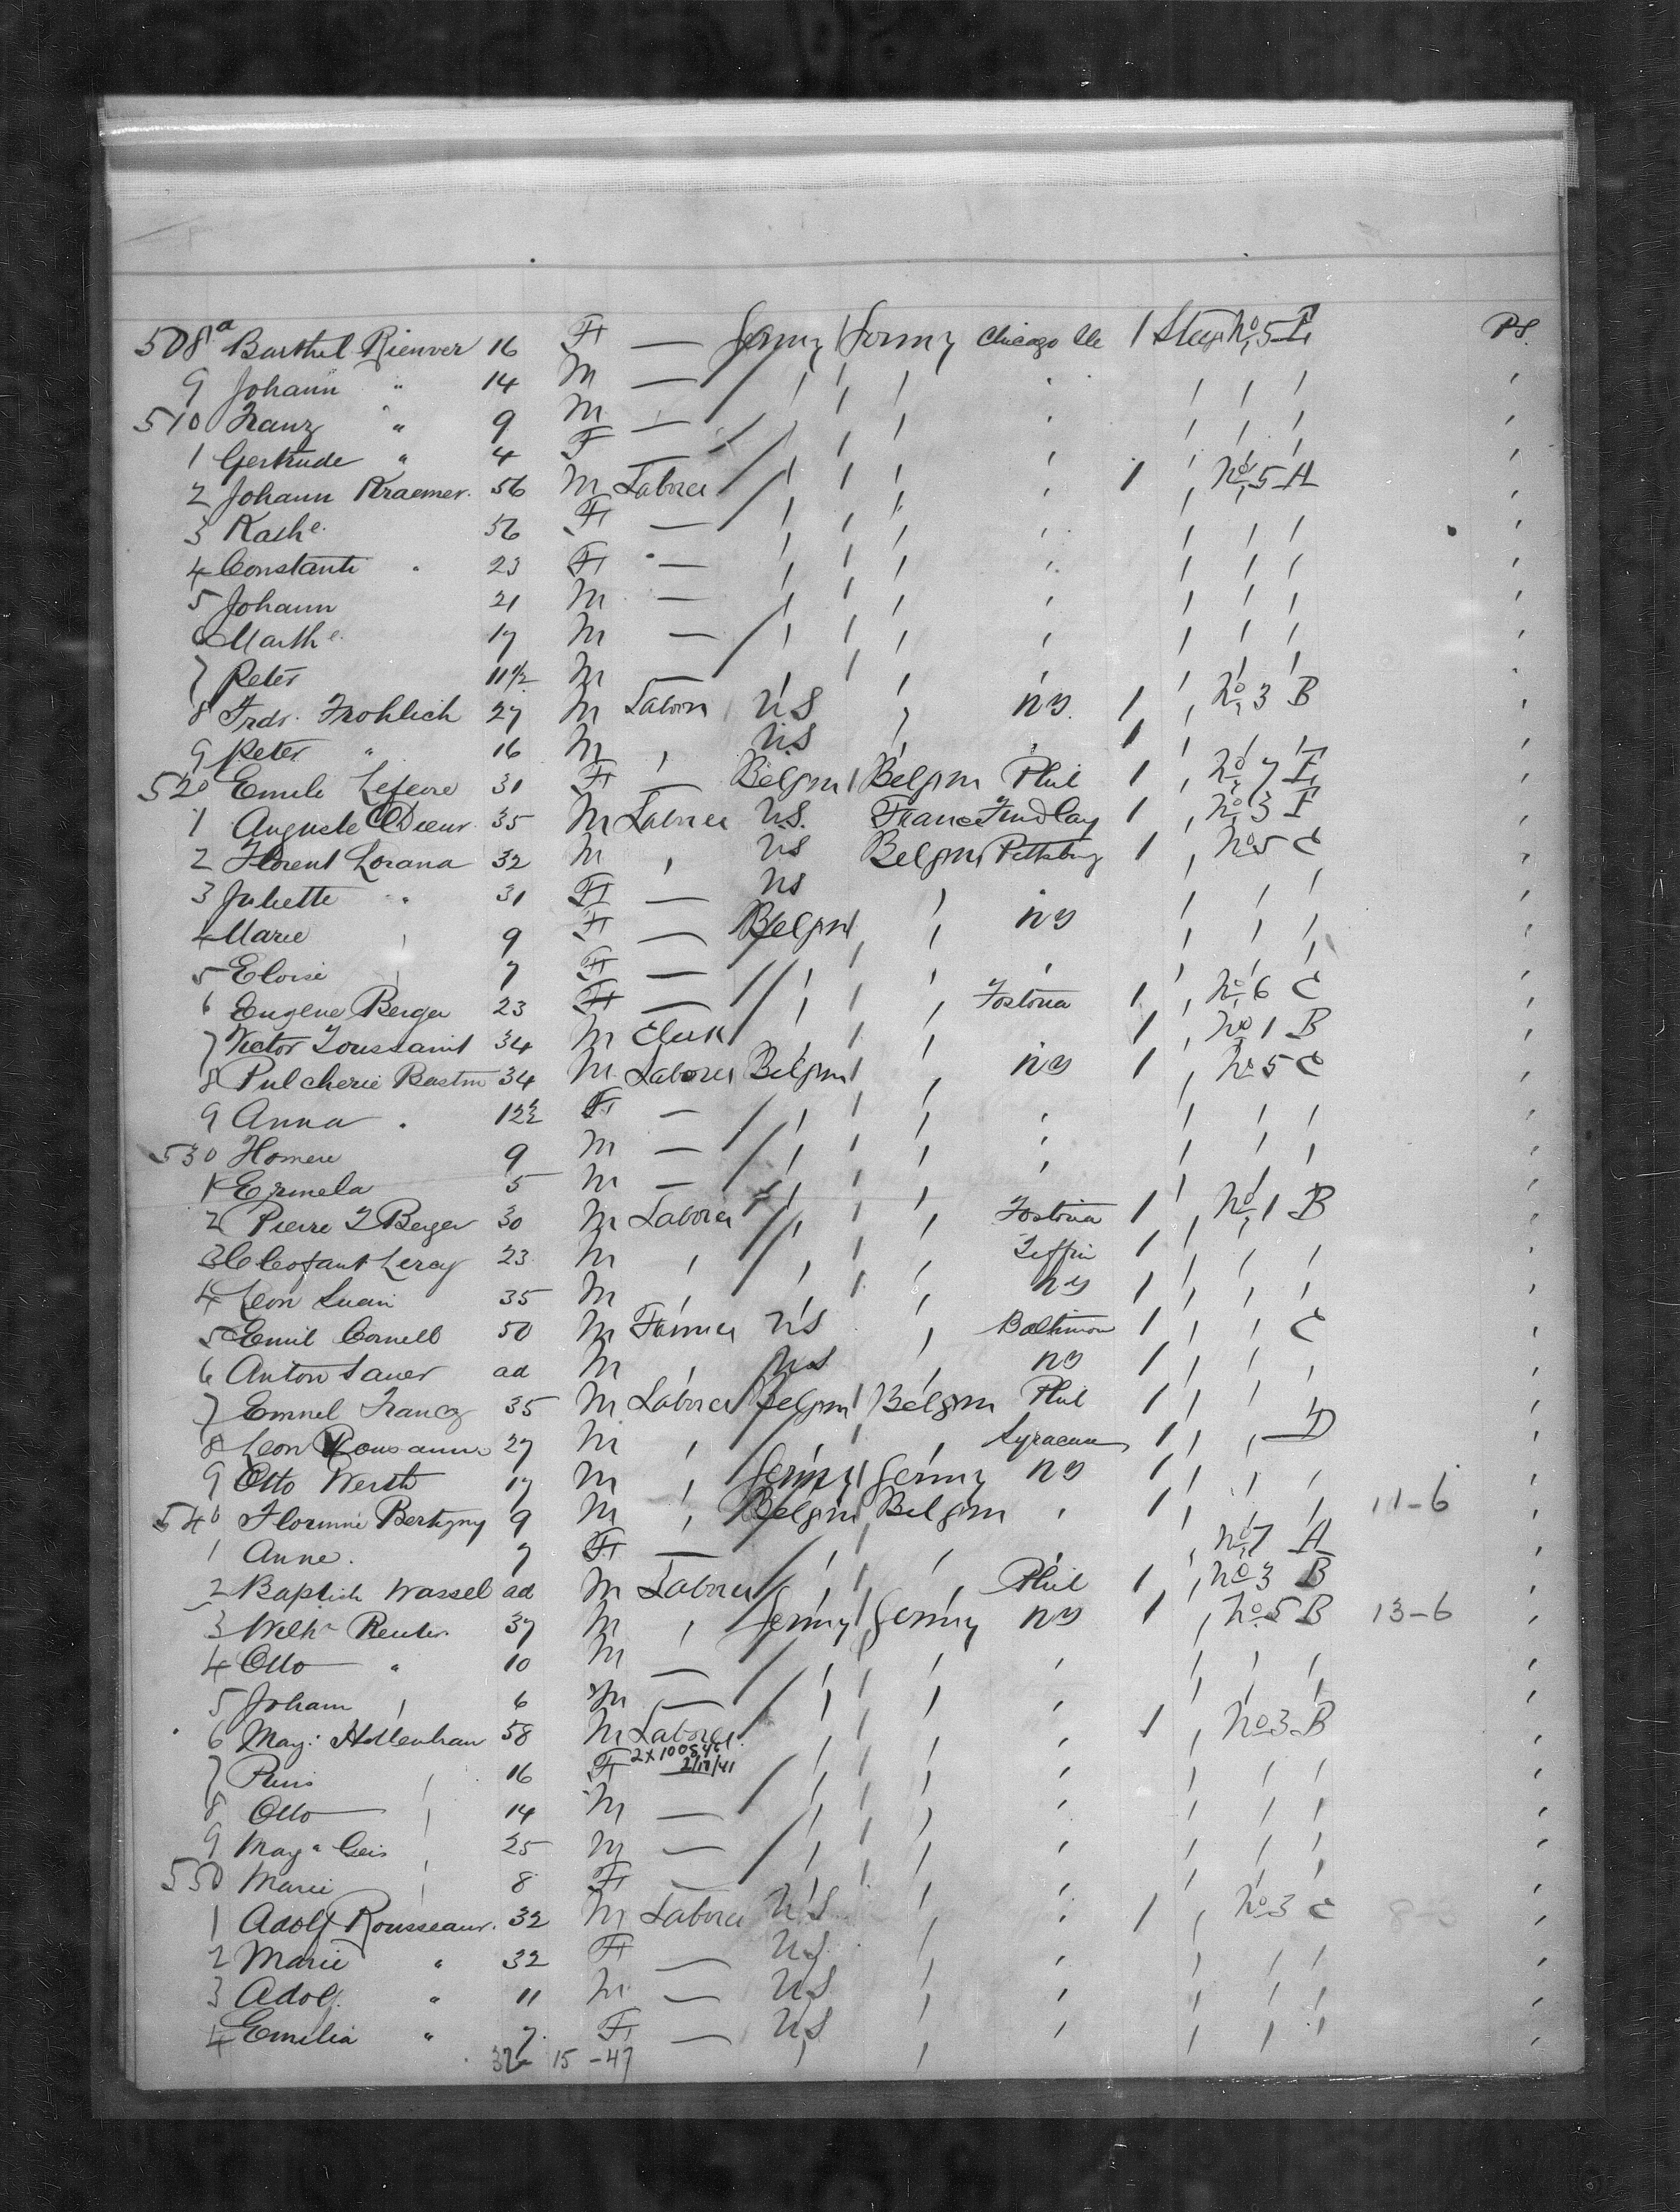 508a Barthel Rienver 16 F — Germy Germy Chicago Ills 1 Steg No 5 E PS.
9 Johann " 14 M —
510 Franz " 9 M —
1 Gertrude " 4 F —
2 Johann Kraemer 56 M Laborer 1 No 5 A
3 Kathe 56 F —
4 Constanti 23 F —
5 Johann 21 M —
6 Marthe 17 M —
7 Peter 11 1/2 M —
8 Frdr. Frohlich 27 M Laborer US NY 1 No 3 B
9 Peter " 16 M US 1
520 Emile Lefevre 31 F — Belgm Belgm Phil 1 No 7 E
1 Auguste 35 M Laborer US. France Findlay 1 No 3 E
2 Florent Lorana 32 M US Belgm Pittsburg 1 No 5 C
3 Juliette " 31 F — US
4 Marie 9 F — Belgm NY
5 Eloise 7 F —
6 Eugene Berger 23 F — Fostoria 1 No 6 C
7 Victor Toussaint 34 M Clerk 1 No 1 B
8 Pulcherie Bastin 34 M Laborer Belgm NY 1 No 5 C
9 Anna 12 1/2 F —
530 Homere 9 M —
1 Ermela 5 M —
2 Pierre J Berger 30 M Laborer Fostoria 1 No 1 B
3 Leroy 23 M Tiffin 1
4 Leon 35 M NY 1
5 Emil Cornell 50 M Farmer US Baltimore 1 C
6 Anton Sauer ad M US NY 1
7 Emnel Francq 35 M Laborer Belgm Belgm Phil 1
8 Leon 27 M Syracuse 1 D
9 Otto Werth 17 M Germy Germy NY 1
540 Florimi Bertigny 9 M Belgm Belgm 1 11-6
1 Anne. 7 F — No 7 A
2 Baptiste Wassel ad M Laborer Phil 1 No 3 B
3 Wilhm Reuter 37 M Germy Germy NY 1 No 5 B 13-6
4 Otto " 10 M —
5 Johann 6 M —
6 Mag: Hollenhau 58 M Laborer 1 No 3 B
2X100846
7 16 F 2/17/41
8 Otto 14 M —
9 Mag a Geis 25 M —
550 Marie 8 F —
1 Adolf Rousseaux 32 M Laborer US 1 No 3 C
2 Marie " 32 F — US
3 Adolf. " 11 M — US
4 Emilia " 7 F — US
32 15 -47